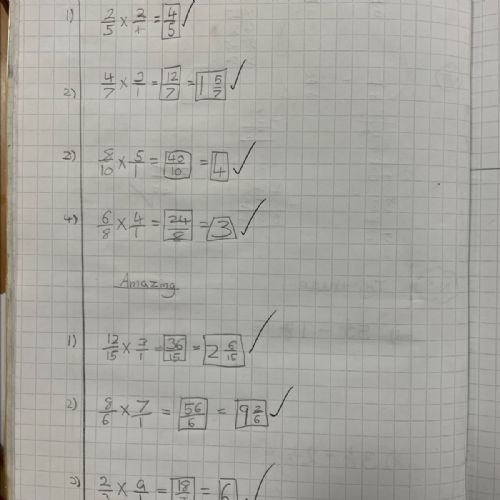 1) 2/5 × 2/1 = 4/5 ✓
2) 4/7 × 3/1 = 12/7 = 1 5/7 ✓
3) 8/10 × 5/1 = 40/10 = 4 ✓
4) 6/8 × 4/1 = 24/8 = 3 ✓
Amazing
1) 12/15 × 3/1 = 36/15 = 2 6/15 ✓
2) 8/6 × 7/1 = 56/6 = 9 2/6 ✓
3) 2/3 × 9/1 = 18/3 = 6 ✓